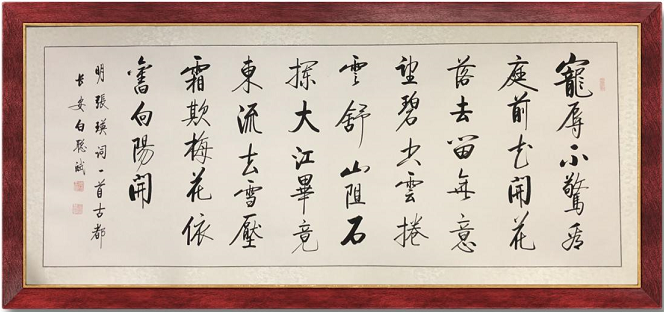 寵辱不驚看
庭前花開花
落去留無意
望碧空雲捲
雲舒山阻石
攔大江畢竟
東流去雪壓
霜欺梅花依
舊向陽開
明張瑛詞一首古都
長安白聰斌